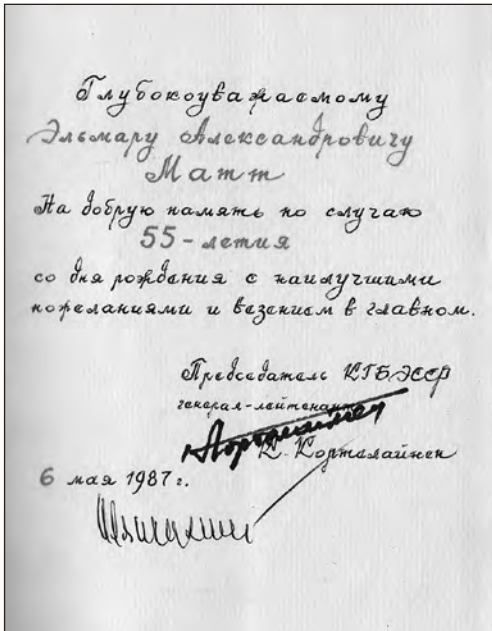 Глубокоуважаемому
Эльмару Александровичу
Матт
На добрую память по случаю
55-летия
со дня рождения с наилучшими
пожеланиями и везением в главном.
Председатель КГБ ЭССР
генерал-лейтенант
К. Кортелайнен
6 мая 1987 г.